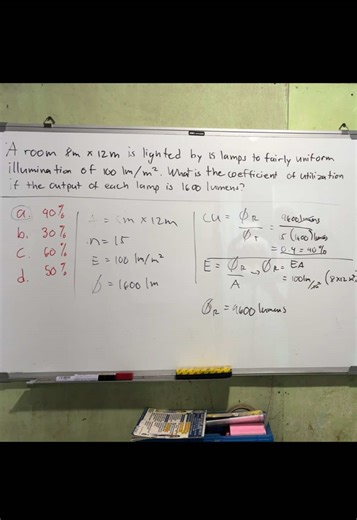 A room 8m x 12m is lighted by 15 lamps to fairly uniform
illumination of 100 lm/m². What is the coefficient of utilization
if the output of each lamp is 1600 lumens?
a. 40%
b. 30%
c. 60%
d. 50%
A = 8m x 12m
n = 15
E = 100 lm/m²
Ø = 1600 lm
CU = ØR / ØT = 9600 lumens / 15 (1600) lumens
= 0.4 = 40%
E = ØR / A → ØR = EA
= 100 lm/m² (8x12 m²)
ØR = 9600 lumens